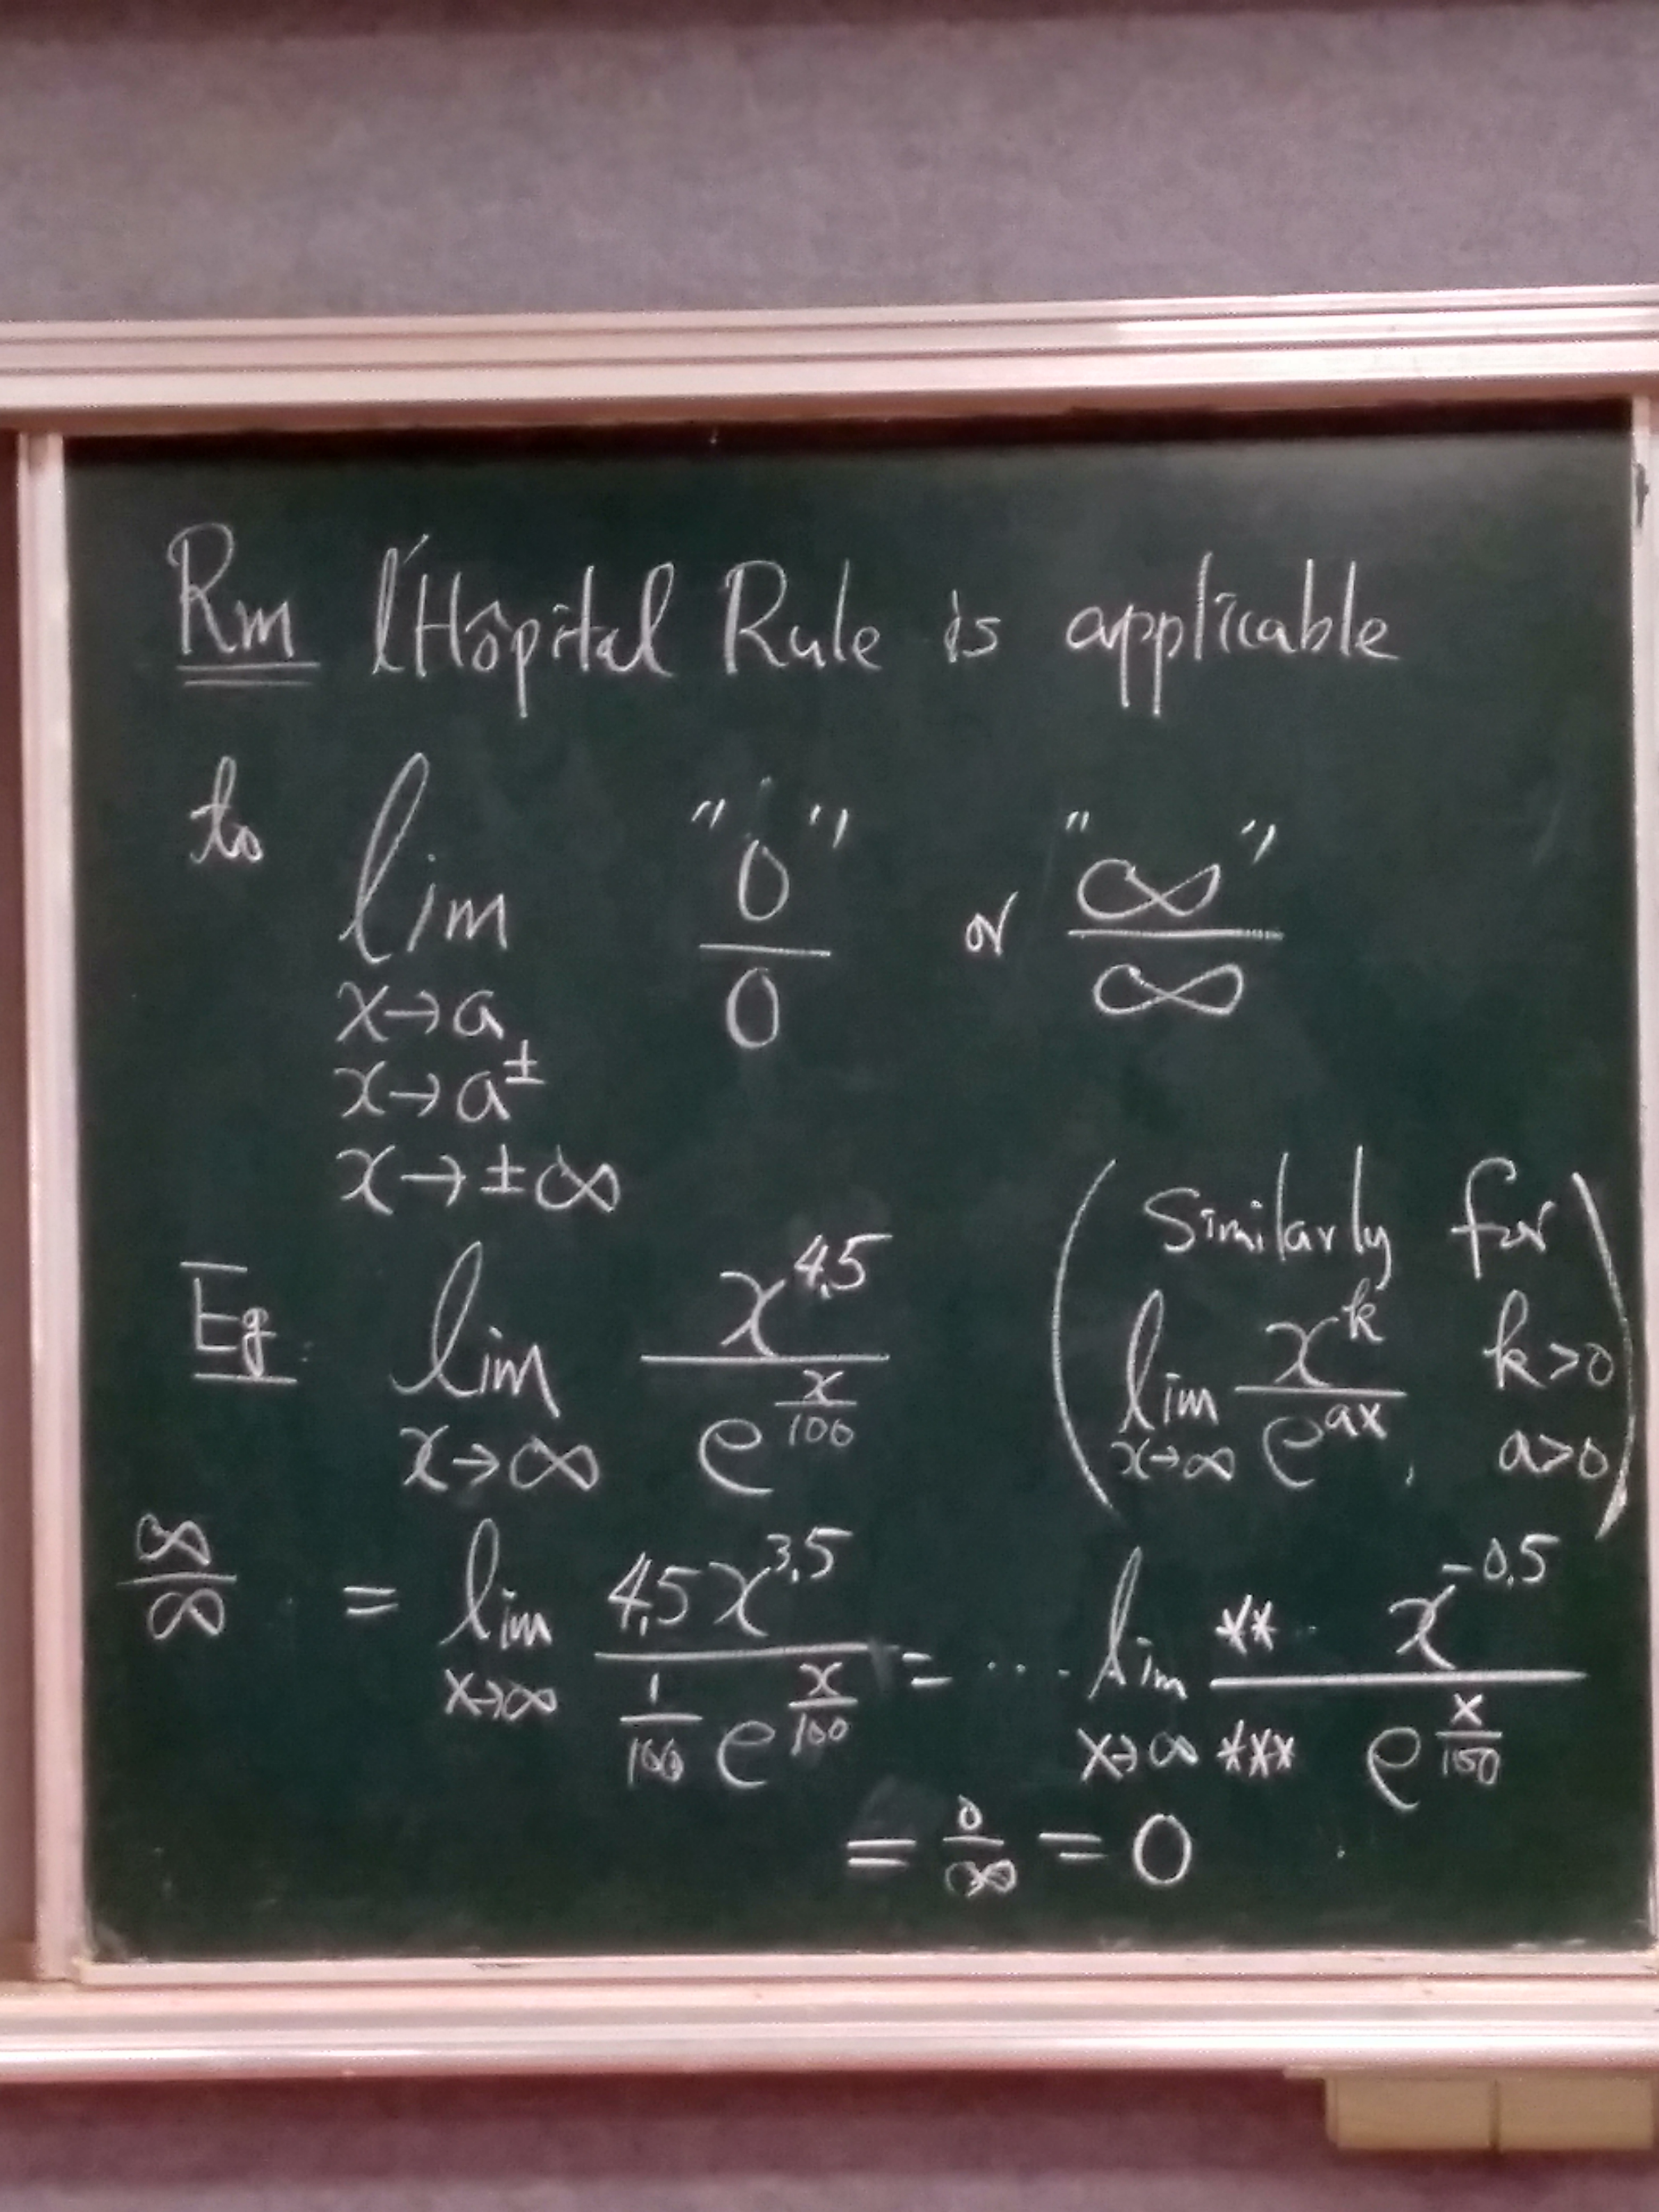 Rm l'Hôpital Rule is applicable
to lim "0/0" or "∞/∞"
x→a
x→a±
x→±∞
Eg lim x→∞ x^4.5 / e^(x/100)
(Similarly for
lim x→∞ x^k / e^(ax), k>0
a>0)
∞/∞ = lim x→∞ 4.5x^3.5 / (1/100 e^(x/100)) = ... lim x→∞ ** x^-0.5 / *** e^(x/100)
= 0/∞ = 0